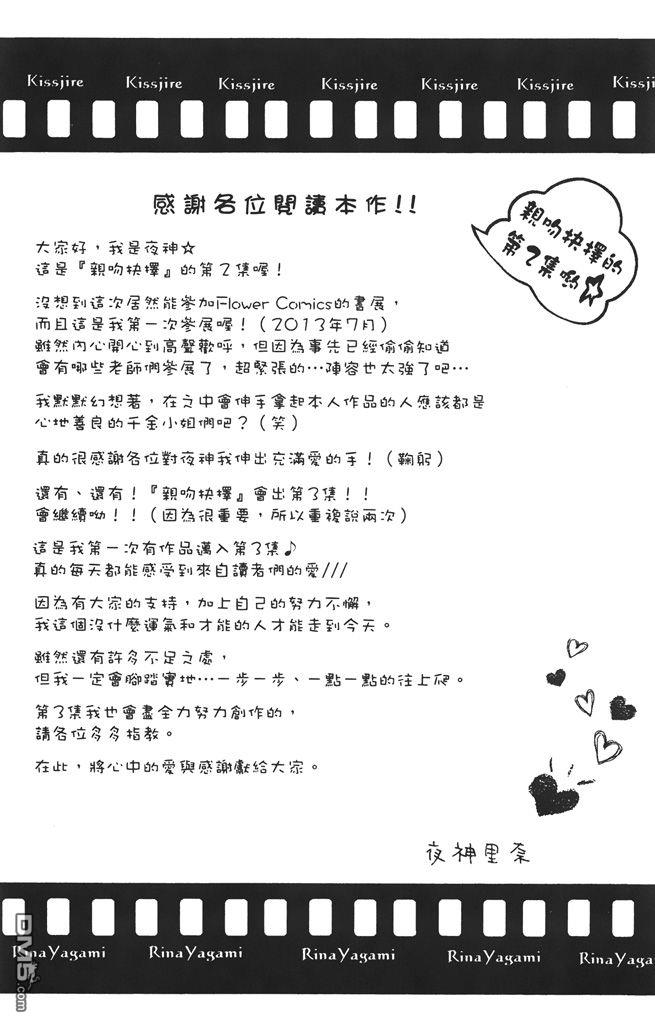 Kissjire Kissjire Kissjire Kissjire Kissjire Kissjire Kissji
感謝各位閱讀本作!!
親吻抉擇的
第2集喲☆
大家好,我是夜神☆
這是『親吻抉擇』的第2集喔!
沒想到這次居然能參加Flower Comics的書展,
而且這是我第一次參展喔!(2013年7月)
雖然內心開心到高聲歡呼,但因為事先已經偷偷知道
會有哪些老師們參展了,超緊張的…陣容也太強了吧…
我默默幻想著,在之中會伸手拿起本人作品的人應該都是
心地善良的千金小姐們吧?(笑)
真的很感謝各位對夜神我伸出充滿愛的手!(鞠躬)
還有、還有!『親吻抉擇』會出第3集!!
會繼續呦!!(因為很重要,所以重複說兩次)
這是我第一次有作品邁入第3集♪
真的每天都能感受到來自讀者們的愛///
因為有大家的支持,加上自己的努力不懈,
我這個沒什麼運氣和才能的人才能走到今天。
雖然還有許多不足之處,
但我一定會腳踏實地…一步一步、一點一點的往上爬。
第3集我也會盡全力努力創作的,
請各位多多指教。
在此,將心中的愛與感謝獻給大家。
夜神里奈
RinaYagami RinaYagami RinaYagami RinaYagami RinaYaga
DM5.com